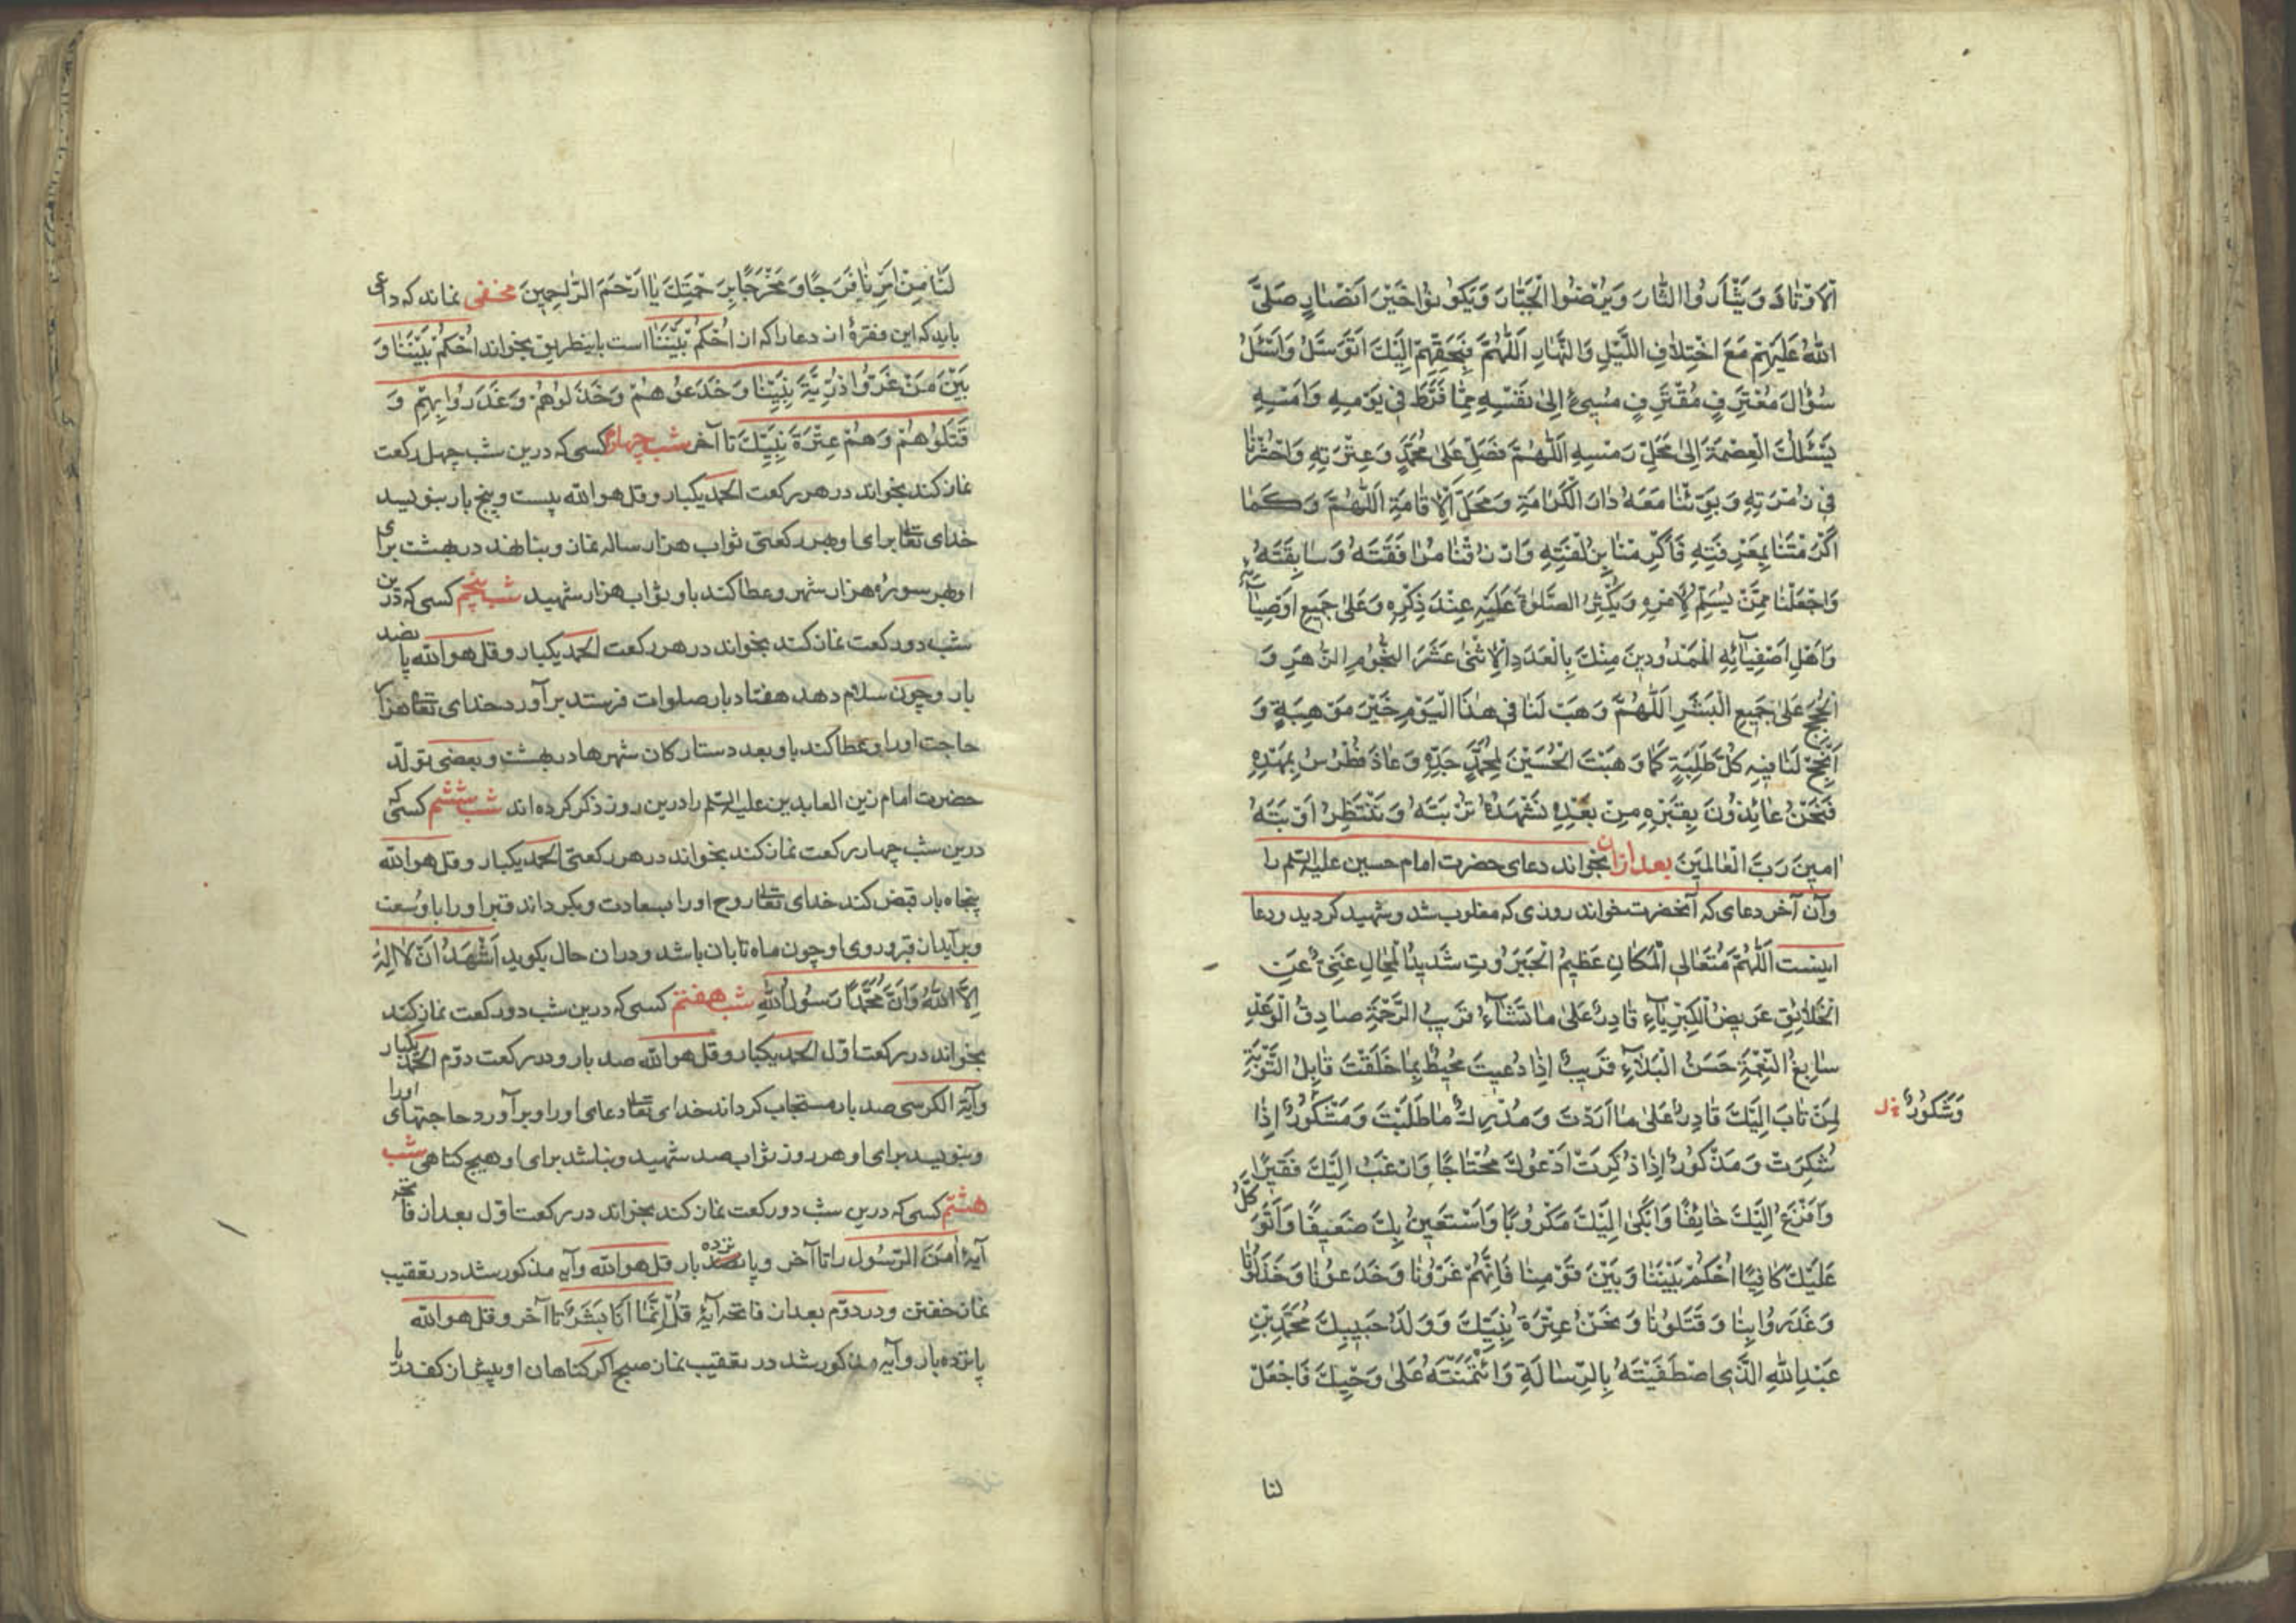 اَلْاَوْتَادَ وَيَثْأَرُوا الثَّارَ وَيَرْضَوُا الْجَبَّارَ وَيَكُونُوا خَيْرَ اَنْصَارٍ صَلَّى
اللهُ عَلَيْهِمْ مَعَ اخْتِلَافِ اللَّيْلِ وَالنَّهَارِ اَللّٰهُمَّ فَبِحَقِّهِمْ اِلَيْكَ اَتَوَسَّلُ وَاَسْئَلُ
سُؤَالَ مُعْتَرِفٍ مُقْتَرِفٍ مُسِيءٍ اِلىٰ نَفْسِهِ مِمَّا فَرَّطَ فِي يَوْمِهِ وَاَمْسِهِ
يَسْئَلُكَ الْعِصْمَةَ اِلىٰ مَحَلِّ رَمْسِهِ اَللّٰهُمَّ فَصَلِّ عَلىٰ مُحَمَّدٍ وَعِتْرَتِهِ وَاحْشُرْنَا
فِي زُمْرَتِهِ وَبَوِّئْنَا مَعَهُ دَارَ الْكَرَامَةِ وَمَحَلَّ الْاِقَامَةِ اَللّٰهُمَّ وَكَمَا
اَكْرَمْتَنَا بِمَعْرِفَتِهِ فَاَكْرِمْنَا بِزُلْفَتِهِ وَارْزُقْنَا مُرَافَقَتَهُ وَسَابِقَتَهُ
وَاجْعَلْنَا مِمَّنْ يُسَلِّمُ لِاَمْرِهِ وَيُكْثِرُ الصَّلٰوةَ عَلَيْهِ عِنْدَ ذِكْرِهِ وَعَلىٰ جَمِيعِ اَوْصِيَائِهِ
وَاَهْلِ اَصْفِيَائِهِ الْمَمْدُودِينَ مِنْكَ بِالْعَدَدِ الْاِثْنَىْ عَشَرَ النُّجُومِ الزُّهَرِ وَ
الْحُجَجِ عَلىٰ جَمِيعِ الْبَشَرِ اَللّٰهُمَّ وَهَبْ لَنَا فِي هٰذَا الْيَوْمِ خَيْرَ مَوْهِبَةٍ وَ
اَنْجِحْ لَنَا فِيهِ كُلَّ طَلِبَةٍ كَمَا وَهَبْتَ الْحُسَيْنَ لِمُحَمَّدٍ جَدِّهِ وَعَاذَ فُطْرُسُ بِمَهْدِهِ
فَنَحْنُ عَائِذُونَ بِقَبْرِهِ مِنْ بَعْدِهِ نَشْهَدُ تُرْبَتَهُ وَنَنْتَظِرُ اَوْبَتَهُ
اٰمِينَ رَبَّ الْعَالَمِينَ بعد ازان بخواند دعاى حضرت امام حسين عليه السلم را
وآن آخر دعاى كه آنحضرت خواند روزى كه مغلوب شد وشهيد كرديد ودعا
اينست اَللّٰهُمَّ مُتَعَالِي الْمَكَانِ عَظِيمُ الْجَبَرُوتِ شَدِيدُ الْمِحَالِ غَنِيٌّ عَنِ
الْخَلَائِقِ عَرِيضُ الْكِبْرِيَاءِ قَادِرٌ عَلىٰ مَا تَشَاءُ قَرِيبُ الرَّحْمَةِ صَادِقُ الْوَعْدِ
سَابِغُ النِّعْمَةِ حَسَنُ الْبَلَاءِ قَرِيبٌ اِذَا دُعِيتَ مُحِيطٌ بِمَا خَلَقْتَ قَابِلُ التَّوْبَةِ
لِمَنْ تَابَ اِلَيْكَ قَادِرٌ عَلىٰ مَا اَرَدْتَ وَمُدْرِكٌ مَا طَلَبْتَ وَمَشْكُورٌ اِذَا
وَشَكُورٌ خ ل
شُكِرَتْ وَمَذْكُورٌ اِذَا ذُكِرَتْ اَدْعُوكَ مُحْتَاجًا وَارْغَبُ اِلَيْكَ فَقِيرًا
وَاَفْزَعُ اِلَيْكَ خَائِفًا وَاَبْكِى اِلَيْكَ مَكْرُوبًا وَاَسْتَعِينُ بِكَ ضَعِيفًا وَاَتَوَكَّلُ
عَلَيْكَ كَافِيًا اُحْكُمْ بَيْنَنَا وَبَيْنَ قَوْمِنَا فَاِنَّهُمْ غَرُّونَا وَخَدَعُونَا وَخَذَلُونَا
وَغَدَرُوا بِنَا وَقَتَلُونَا وَنَحْنُ عِتْرَةُ نَبِيِّكَ وَوَلَدُ حَبِيبِكَ مُحَمَّدِ بْنِ
عَبْدِ اللهِ الَّذِى اصْطَفَيْتَهُ بِالرِّسَالَةِ وَائْتَمَنْتَهُ عَلىٰ وَحْيِكَ فَاجْعَلْ
لنا
لَنَا مِنْ اَمْرِنَا فَرَجًا وَمَخْرَجًا بِرَحْمَتِكَ يَا اَرْحَمَ الرَّاحِمِينَ مخفى نماند كه داعى
بايد كه اين فقرهٔ از دعا را كه ان اُحْكُمْ بَيْنَنَا است باينطريق بخواند اُحْكُمْ بَيْنَنَا وَ
بَيْنَ مَنْ غَرُّوا ذُرِّيَّةَ نَبِيِّنَا وَخَدَعُوهُمْ وَخَذَلُوهُمْ وَغَدَرُوا بِهِمْ وَ
قَتَلُوهُمْ وَهُمْ عِتْرَةُ نَبِيِّكَ تا آخر شب چهارم كسى كه درين شب چهل ركعت
نماز كند بخواند در هر ركعت الحمد يكبار وقل هو الله بيست وپنج بار بنويسد
خداى تعالى براى او بهر ركعتى ثواب هزار ساله نماز وبنا نهد در بهشت براى
او بهر سوره هزار شهر وعطا كند باو ثواب هزار شهيد شب پنجم كسى كه درين
شب دو ركعت نماز كند بخواند در هر ركعت الحمد يكبار وقل هو الله پانصد
بار وچون سلام دهد هفتاد بار صلوات فرستد برآورد خداى تعالى هزار
حاجت او را وعطا كند باو بعدد ستارکان شهرها در بهشت وبعضى تولّد
حضرت امام زين العابدين عليه السلم را درين روز ذكر كرده اند شب ششم كسى كه
درين شب چهار ركعت نماز كند بخواند در هر ركعتى الحمد يكبار وقل هو الله
پنجاه بار قبض كند خداى تعالى روح او را بسعادت وبكرداند قبر او را با وسعت
وبرآيد از قبر وروى او چون ماه تابان باشد ودران حال بكويد اَشْهَدُ اَنْ لَا اِلٰهَ
اِلَّا اللهُ وَاَنَّ مُحَمَّدًا رَسُولُ اللهِ شب هفتم كسى كه درين شب دو ركعت نماز كند
بخواند در ركعت اوّل الحمد يكبار وقل هو الله صد بار ودر ركعت دوّم الحمد يكبار
وآية الكرسى صد بار مستجاب كرداند خداى تعالى دعاى او را وبرآورد حاجتهاى او را
وبنويسد براى او هر روز ثواب صد شهيد ونباشد براى او هيچ كناهى شب
هشتم كسى كه درين شب دو ركعت نماز كند بخواند در ركعت اوّل بعد از فاتحه
آيهٔ اٰمَنَ الرَّسُولُ را تا آخر وپانزده بار قل هو الله وآيهٔ مذكور شد در تعقيب
نماز خفتن ودر دوّم بعد از فاتحه آيهٔ قُلْ اِنَّمَا اَنَا بَشَرٌ تا آخر وقل هو الله
پانزده بار وآيه مذكور شد در تعقيب نماز صبح اكر كناهان او بيش از كف دريا